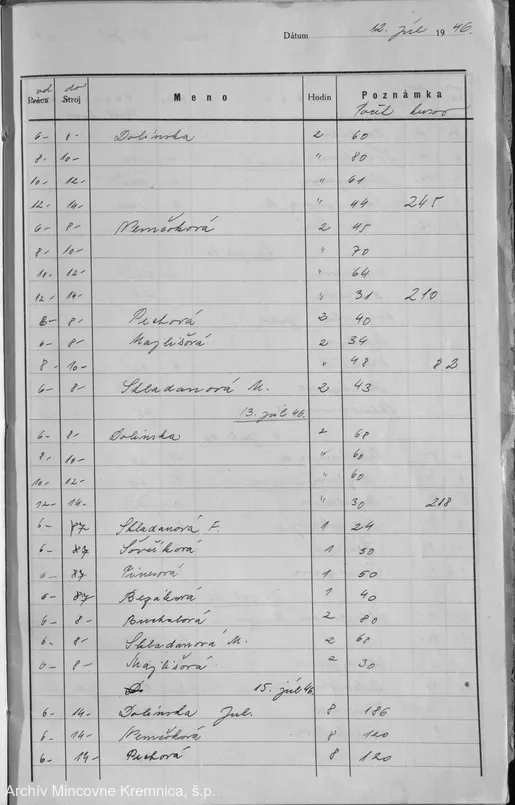 Dátum 12. júl 1946.
od do
Práca Stroj Meno Hodín Poznámka
Počet kusov
6- 8- Dolinska 2 60
8- 10- " 80
10- 12- " 61
12- 14- " 44 245
6- 8- Nemčoková 2 45
8- 10- " 70
10- 12- " 64
12- 14- " 31 210
6- 8- Pichová 2 40
6- 8- Majlišová 2 34
8- 10- " 48 82
6- 8- Skladanová M. 2 43
13. júl 46.
6- 8- Dolinska 2 68
8- 10- " 60
10- 12- " 60
12- 14- " 30 218
6- 87 Skladanová F. 1 24
6- 87 1 30
6- 87 1 50
6- 87 Bezáková 1 40
6- 8- Buchalová 2 80
6- 8- Skladanová M. 2 68
6- 8- Majlišová 2 30
15. júl 46.
6- 14- Dolinska Jul. 8 186
6- 14- Nemčoková 8 120
6- 14- Pichová 8 120
Archív Mincovne Kremnica, š.p.